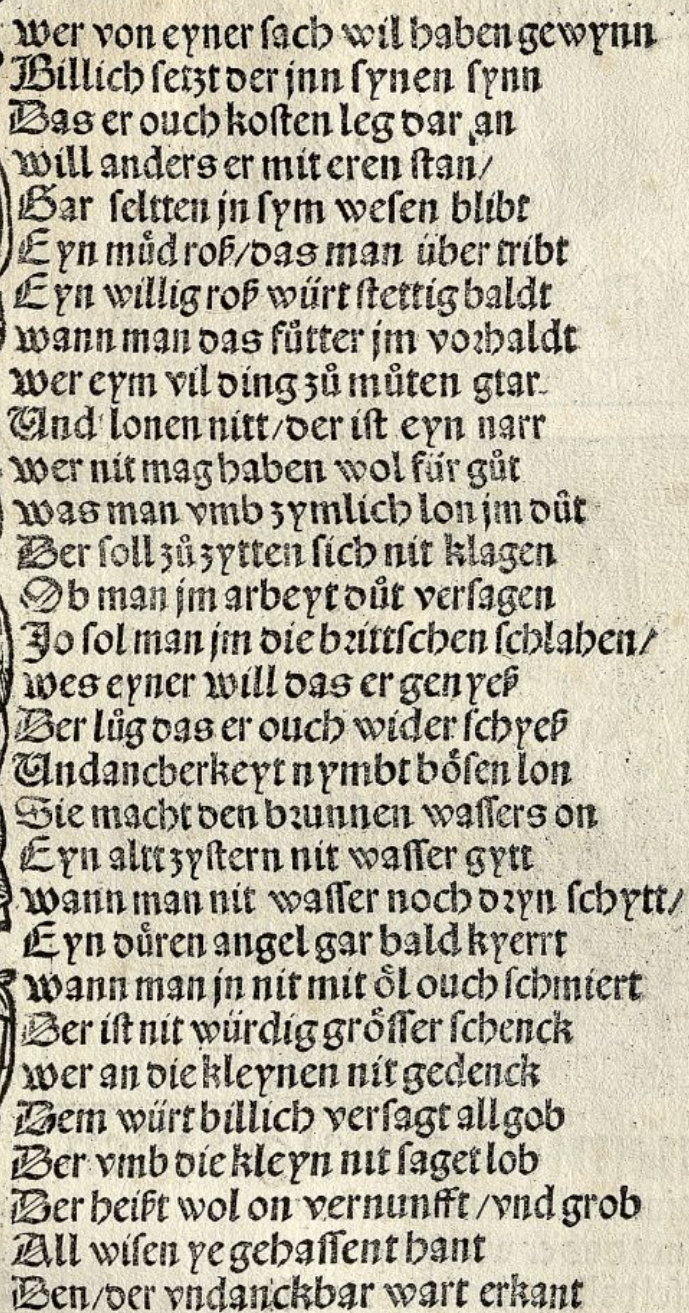 Wer von eyner sach wil haben gewynn
Billich setzt der jnn synen synn
Das er ouch kosten leg dar an
Will anders er mit eren stan/
Gar seltten jn sym wesen blibt
Eyn muͤd roß/das man über tribt
Eyn willig roß würt stettig baldt
Wann man das fůtter jm vorhaldt
Wer eym vil ding zů můten gtar
Und lonen nitt/der ist eyn narr
Wer nit mag haben wol für gůt
Was man vmb zymlich lon jm důt
Der soll zů zytten sich nit klagen
Ob man jm arbeyt důt versagen
Jo sol man jm die brittschen schlahen/
Wes eyner will das er genyeß
Der lůg das er ouch wider schyeß
Undanckberkeyt nymbt boͤsen lon
Sie macht den brunnen wassers on
Eyn altt zystern nit wasser gytt
Wann man nit wasser noch dryn schytt/
Eyn düren angel gar bald kyerrt
Wann man jn nit mit oͤl ouch schmiert
Der ist nit würdig groͤsser schenck
Wer an die kleynen nit gedenck
Dem würt billich versagt all gob
Der vmb die kleyn nit saget lob
Der heißt wol on vernunfft/vnd grob
All wisen ye gehassent hant
Den/der vndanckbar wart erkant